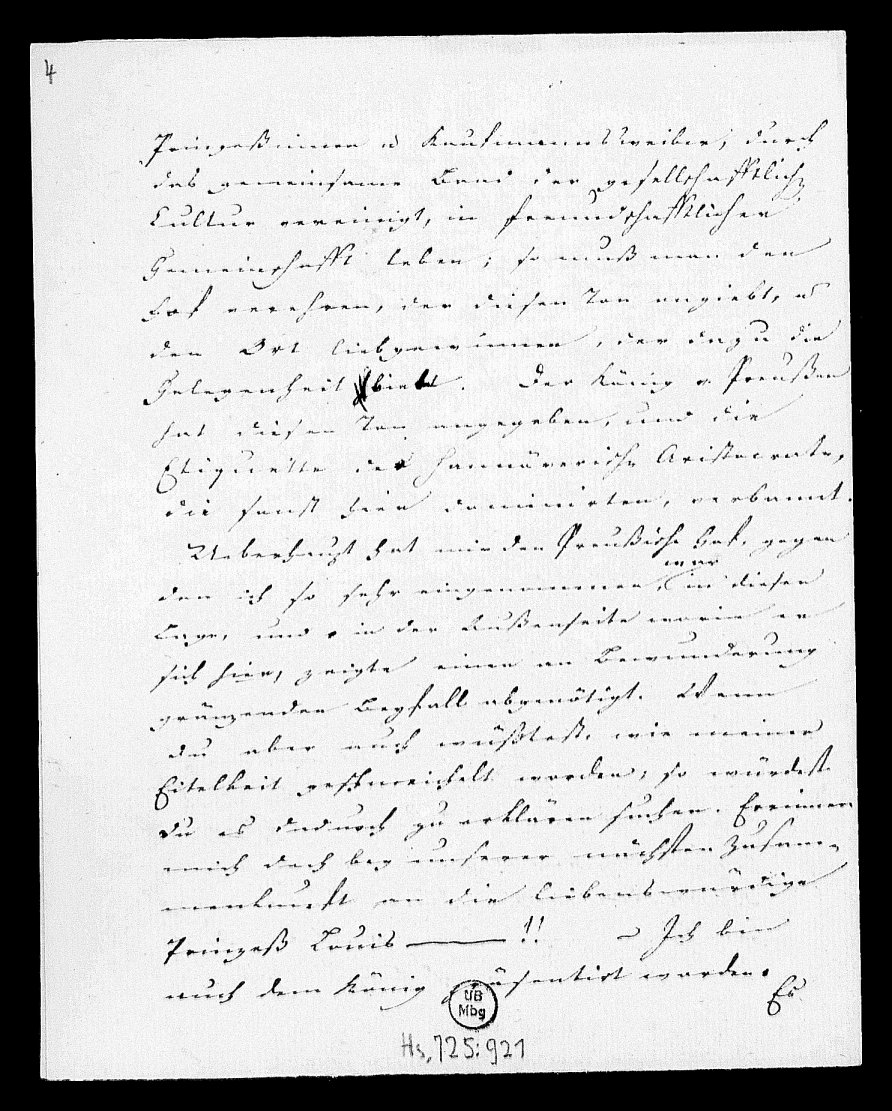 4
Prinzeßinnen u Kaufmannsweiber, durch
das gemeinsame Band der gesellschafftlich
Cultur vereinigt, in freundschafftlicher
Gemeinschafft leben; so muß man den
Hof verehren, der diesen Ton angiebt, u
den Ort liebgewinnen, der dazu die
Gelegenheit biebt. Der König v. Preußen
hat diesen Ton angegeben, und die
Etiquette der Hannöverische Aristocrate,
die sonst hier dominirten, verbannt.
Ueberhaupt hat mir den Preußische Hof, gegen
den ich so sehr eingenommen war, in diesen
Tage, und in der Außenseite worin er
sich hier, zeigte einen an Bewunderung
gränzenden Beyfall abgenötigt. Wenn
du aber auch wüßtest, wie meiner
Eitelkeit geschmeichelt worden, so würdest
du es dadurch zu erklären suchen. Erinnere
mich doch bey unserer nächsten Zusam-
menkunft an die liebenswürdige
Prinzeß Louis — !! – Ich bin
auch dem König präsentirt worden.
Es
UB
Mbg
Hs, 725:921